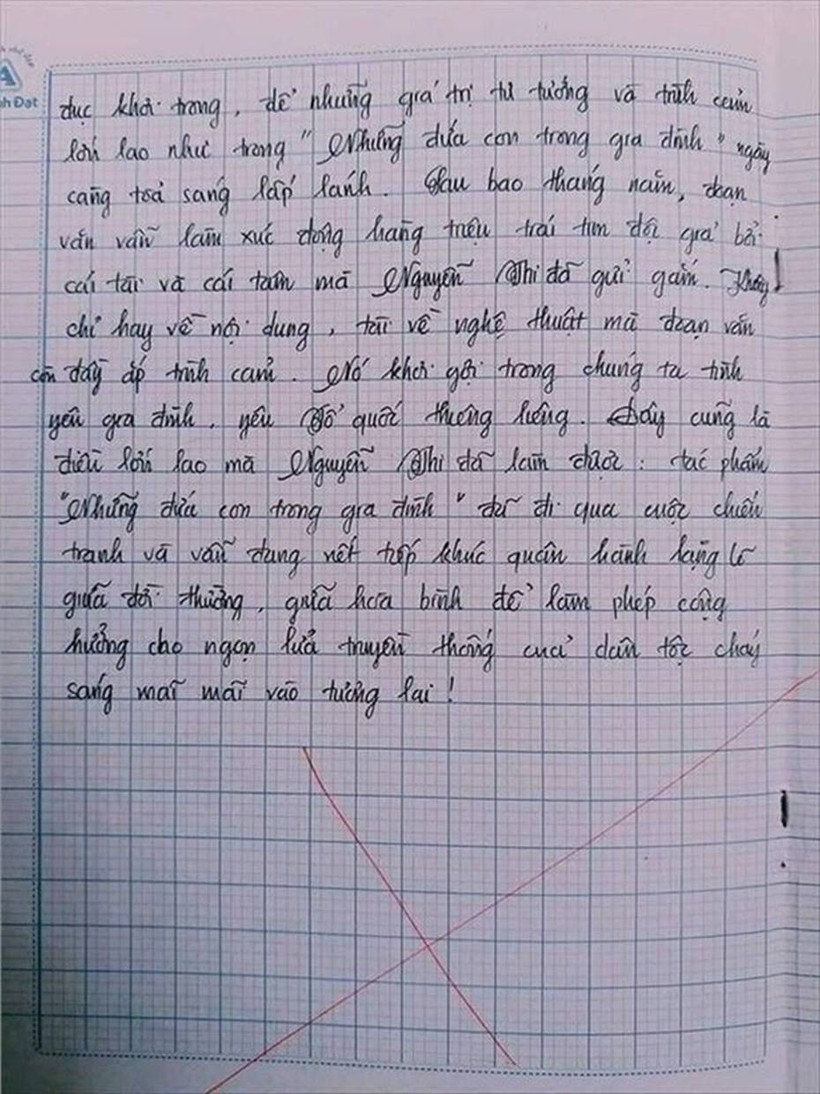 nh Đạt
đục khơi trong, để những giá trị tư tưởng và tình cảm
lớn lao như trong "Những đứa con trong gia đình" ngày
càng toả sáng lấp lánh. Sau bao tháng năm, đoạn
văn vẫn làm xúc động hàng triệu trái tim độc giả bởi
cái tài và cái tâm mà Nguyễn Thi đã gửi gắm. Không
chỉ hay về nội dung, tài về nghệ thuật mà đoạn văn
còn đầy ắp tình cảm. Nó khơi gợi trong chúng ta tình
yêu gia đình, yêu Tổ quốc thiêng liêng. Đây cũng là
điều lớn lao mà Nguyễn Thi đã làm được: tác phẩm
"Những đứa con trong gia đình" đã đi qua cuộc chiến
tranh và vẫn đang viết tiếp khúc quân hành lặng lẽ
giữa đời thường, giữa hoà bình để làm phép cộng
hưởng cho ngọn lửa truyền thống của dân tộc cháy
sáng mãi mãi vào tương lai!